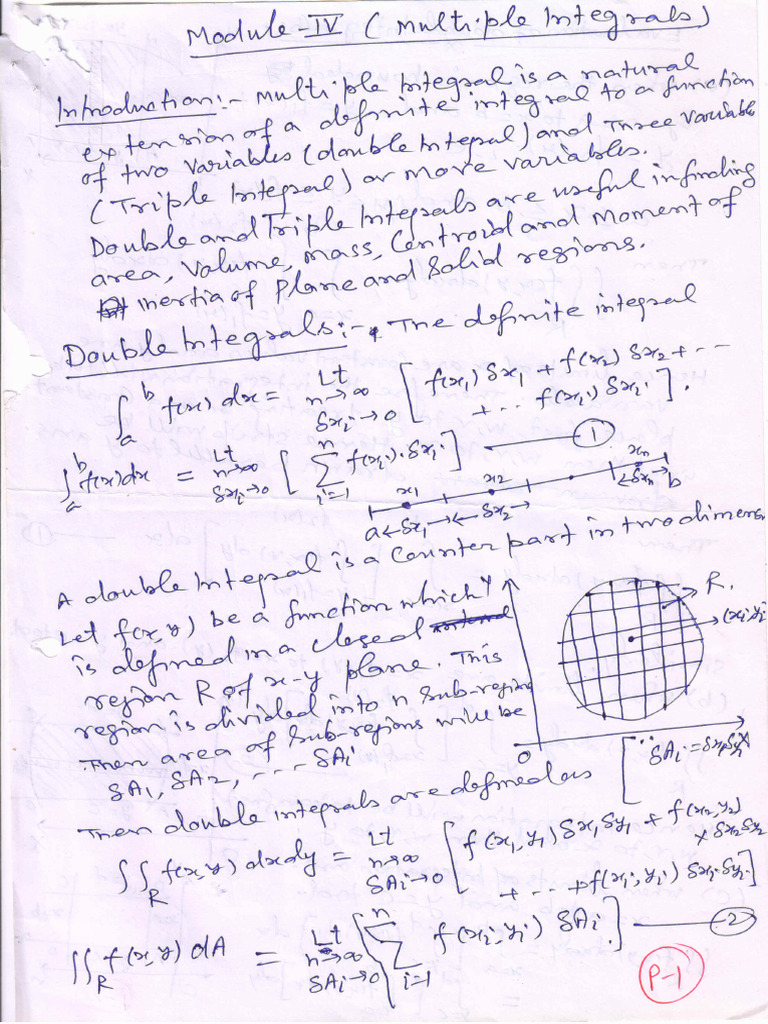 Module-IV (Multiple Integrals)
Introduction:- Multiple Integral is a natural
extension of a definite integral to a function
of two variables (double Integral) and Three variable
(Triple Integral) or more variables.
Double and Triple Integrals are useful in finding
area, volume, mass, Centroid and Moment of
inertia of Plane and Solid regions.
Double Integrals:- The definite integral
∫_a^b f(x) dx = Lt_{n→∞, δx_i→0} [f(x_1) δx_1 + f(x_2) δx_2 + ---
+ -- f(x_i) δx_i].
∫_a^b f(x) dx = Lt_{n→∞, δx_i→0} [∑_{i=1}^n f(x_i)·δx_i] — ①
x_1 x_2 x_n
a ←δx_1→ ←δx_2→ ←δx_n→ b
A double Integral is a Counter part in two dimens
Let f(x,y) be a function which
is defined in a closed
region R of x-y plane. This
region is divided into n sub-region
Then area of sub-regions will be
δA_1, δA_2, ---- δA_i
Y R.
(x_i, y_i)
O X
[∵ δA_i = δx_i δy_i
Then double integrals are defined as
∫∫_R f(x,y) dx dy = Lt_{n→∞, δA_i→0} [f(x_1, y_1) δx_1 δy_1 + f(x_2, y_2)
× δx_2 δy_2
+ --- + f(x_i, y_i) δx_i·δy_i]
∫∫_R f(x,y) dA = Lt_{n→∞, δA_i→0} {∑_{i=1}^n f(x_i, y_i) δA_i] — ②
P-1